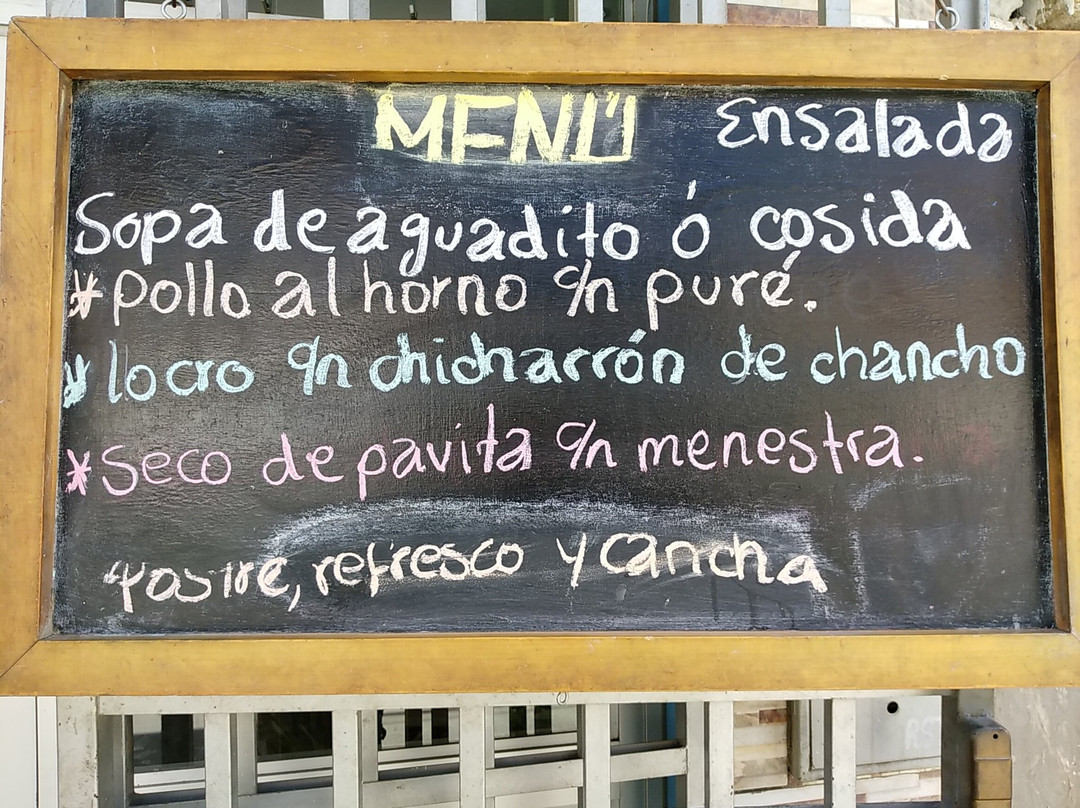 MENÚ Ensalada
Sopa de aguadito ó cosida
*pollo al horno c/n puré.
*locro c/n chicharrón de chancho
*seco de pavita c/n menestra.
Postre, refresco y cancha